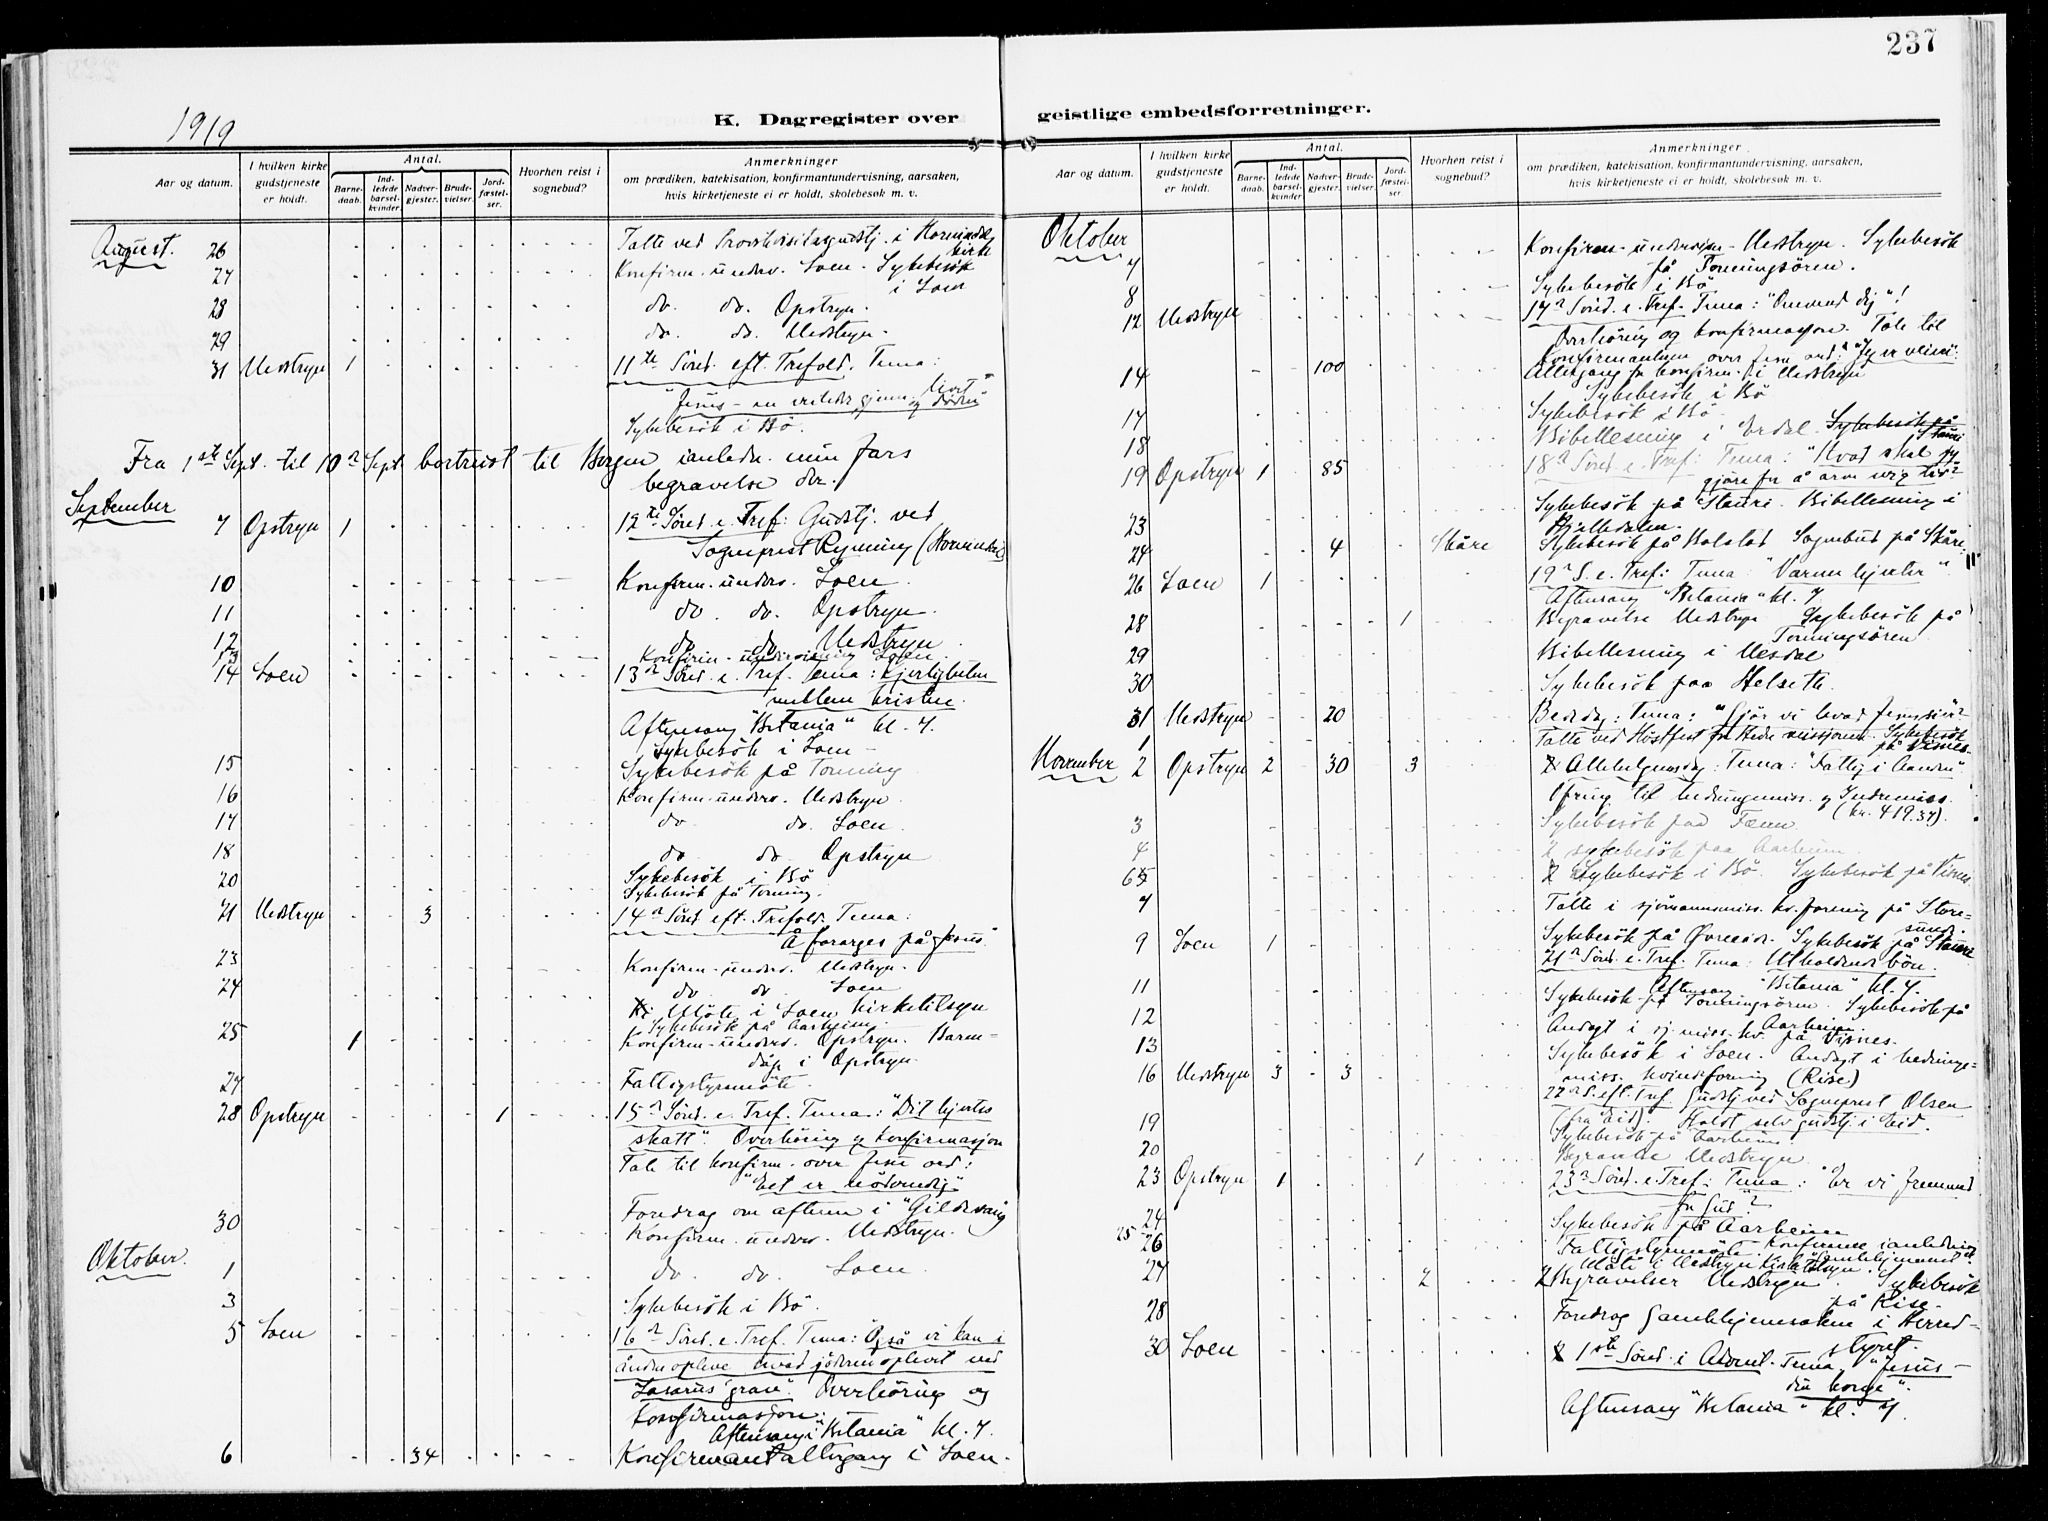 237
1919
K. Dagregister over geistlige embedsforretninger.
Aar og datum. I hvilken kirke gudstjeneste er holdt. Antal. Barnedaab. Indledede barselkvinder. Nadvergjester. Brudevielser. Jordfæstelser. Hvorhen reist i sognebud? Anmerkninger om prædiken, katekisation, konfirmantundervisning, aarsaken, hvis kirketjeneste ei er holdt, skolebesøk m. v.
August. 26 Talte ved Provstivisitasgudstj. i Hornindal kirke
27 Konfirm. underv. Loen. Sykebesök
i Loen
28 do. do. Opstryn.
29 do. do. Nedstryn.
31 Nedstryn 1 11te Sönd. eft. Trefold. Tema:
"Jesus - en veileder gjennem livet og döden"
Sykebesök i Bö.
Fra 1ste Sept. til 10n Sept bortreist til Bergen i anledn. min fars
begravelse der.
September
7 Opstryn 1 12te Sönd. e. Tref: Gudstj. ved
Sogneprest Ryming (Hornindal)
10 Konfirm. underv. Loen.
11 do. do. Opstryn.
12 do do Nedstryn
13 Konfirm-undervisning Loen.
14 Loen 13n Sönd. e. Tref. Tema: Kjerligheten
mellem kristne.
Aftensang "Betania" kl. 7.
Sykebesök i Loen -
15 Sykebesök på Tonning
16 Konfirm-underv. Nedstryn.
17 do do. Loen.
18 do do. Opstryn
20 Sykebesök i Bö
Sykebesök på Tonning.
21 Nedstryn 3 14n Sönd. eft. Trefold. Tema:
Å forarges på Jesus"
23 Konfirm-underv. Nedstryn.
24 do do Loen
Möte i Loen kirketilsyn
Sykebesök på Aarheim.
25 1 Konfirm-underv. Opstryn. Barne-
dåp i Opstryn.
27 Fattigstyremöte.
28 Opstryn 1 15n Sönd. e. Tref. Tema: "Dit hjertes
skatt". Overhöring og Konfirmasjon
Tale til konfirm. over Jesu ord:
"Eet er nödvendig"
Foredrag om aftenen i "Gildevang
30 Konfirm. underv. Nedstryn.
Oktober.
1 do. do. Loen.
3 Sykebesök i Bö.
5 Loen 16n Sönd. e. Tref. Tema: Også vi kan i
ånden opleve hvad jöderne oplevet ved
Lasarus' grav". Overhöring og
Konfirmasjon.
Aftensang i "Betania" kl. 7.
6 34 Konfirmantaltergang i Loen.
Aar og datum. I hvilken kirke gudstjeneste er holdt. Antal. Barnedaab. Indledede barselkvinder. Nadvergjester. Brudevielser. Jordfæstelser. Hvorhen reist i sognebud? Anmerkninger om prædiken, katekisation, konfirmantundervisning, aarsaken, hvis kirketjeneste ei er holdt, skolebesøk m. v.
Oktober
7 Konfirm-undervisn-Nedstryn. Sykebesök
på Tonningsören.
8 Sykebesök i Bö
12 Nedstryn 17n Sönd. e. Tref. Tema: "Omvend dig"!
Overhöring og konfirmasjon. Tale til
Konfirmantene over Jesu ord: "Jeg er veien".
14 100 Altergang for konfirm. i Nedstryn
Sykebesök i Bö
17 Sykebesök i Bö.
18 Bibellesning i Erdal. Sykebesök på Stauri
19 Opstryn 1 85 18n Sönd. e. Tref: Tema: "Hvad skal jeg
gjöre for å arve evig liv?
23 Sykebesök på Stauri. Bibellesning i
Hjelledalen.
24 4 Skåre Sykebesök på Bolstad Sognebud på Skåre.
26 Loen 1 19n S. e. Tref: Tema: "Varme hjerter"
Aftensang "Betania" kl. 7
28 1 Begravelse Nedstryn Sykebesök på
Tonningsören
29 Bibellesning i Nesdal
30 Sykebesök paa Helseth.
31 Nedstryn 20 Bededag: Tema: "Gjör vi hvad Jesus sir?
1 Talte ved Höstfest for Hedn. missjonen. Sykebesök
på Visnes.
November 2 Opstryn 2 30 3 Allehelgensdag: Tema: "Fattig i Aanden".
Ofring til hedningemiss. og Indremiss.
(kr. 419.37).
3 Sykebesök paa
4 2 sykebesök paa Aarheim.
65 Sykebesök i Bö. Sykebesök på Visnes
7 Talte i sjömannsmiss. kv. forening på Store-
sund.
9 Loen 1 Sykebesök på Övreeide. Sykebesök på Stauri
21n Sönd. e. Tref. Tema: Utholdende bön.
Aftensang "Betania" kl. 7.
11 Sykebesök på Tonningsören. Sykebesök på
Aarheim.
12 Andagt i sj. miss. kv. på Visnes.
13 Sykebesök i Loen. Andagt i hednings-
miss. kvindeforning (Rise)
16 Nedstryn 3 3 22n S. eft. Tref. Gudstj ved Sogneprest Olsen
(fra Eid). Holdt selv gudstj i Eid.
19 Sykebesök på Aarheim
20 1 Begravelse Nedstryn
23 Opstryn 1 23n Sönd. e. Tref: Tema: "Er vi fremmed
for Gud"?
24 Sykebesök på Aarheim
25 26 Fattigstyremöte. Konferanse i anledning Gamlehjemmet.
Möte i Nedstryn Kirketilsyn.
27 2 2 Begravelser Nedstryn. Sykebesök
på Rise.
28 Foredrag Gamlehjemsaken i Herred-
styret.
30 Loen 1ste Sönd. i Advent. Tema "Jesus -
din konge".
Aftensang "Betania" kl. 7.